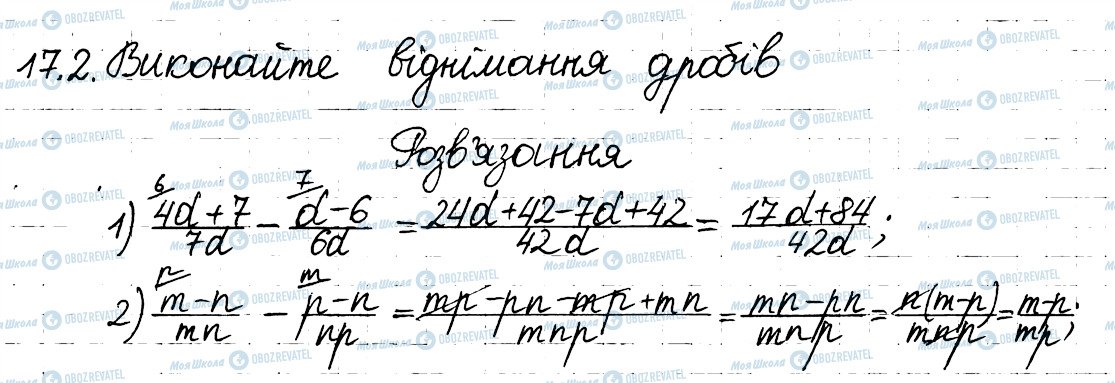 17.2. Виконайте віднімання дробів
Розв'язання
1) (4d+7)/(7d) - (d-6)/(6d) = (24d+42-7d+42)/(42d) = (17d+84)/(42d);
2) (m-n)/(mn) - (p-n)/(np) = (mp-pn-mp+mn)/(mnp) = (mn-pn)/(mnp) = n(m-p)/(mnp) = (m-p)/(mp);